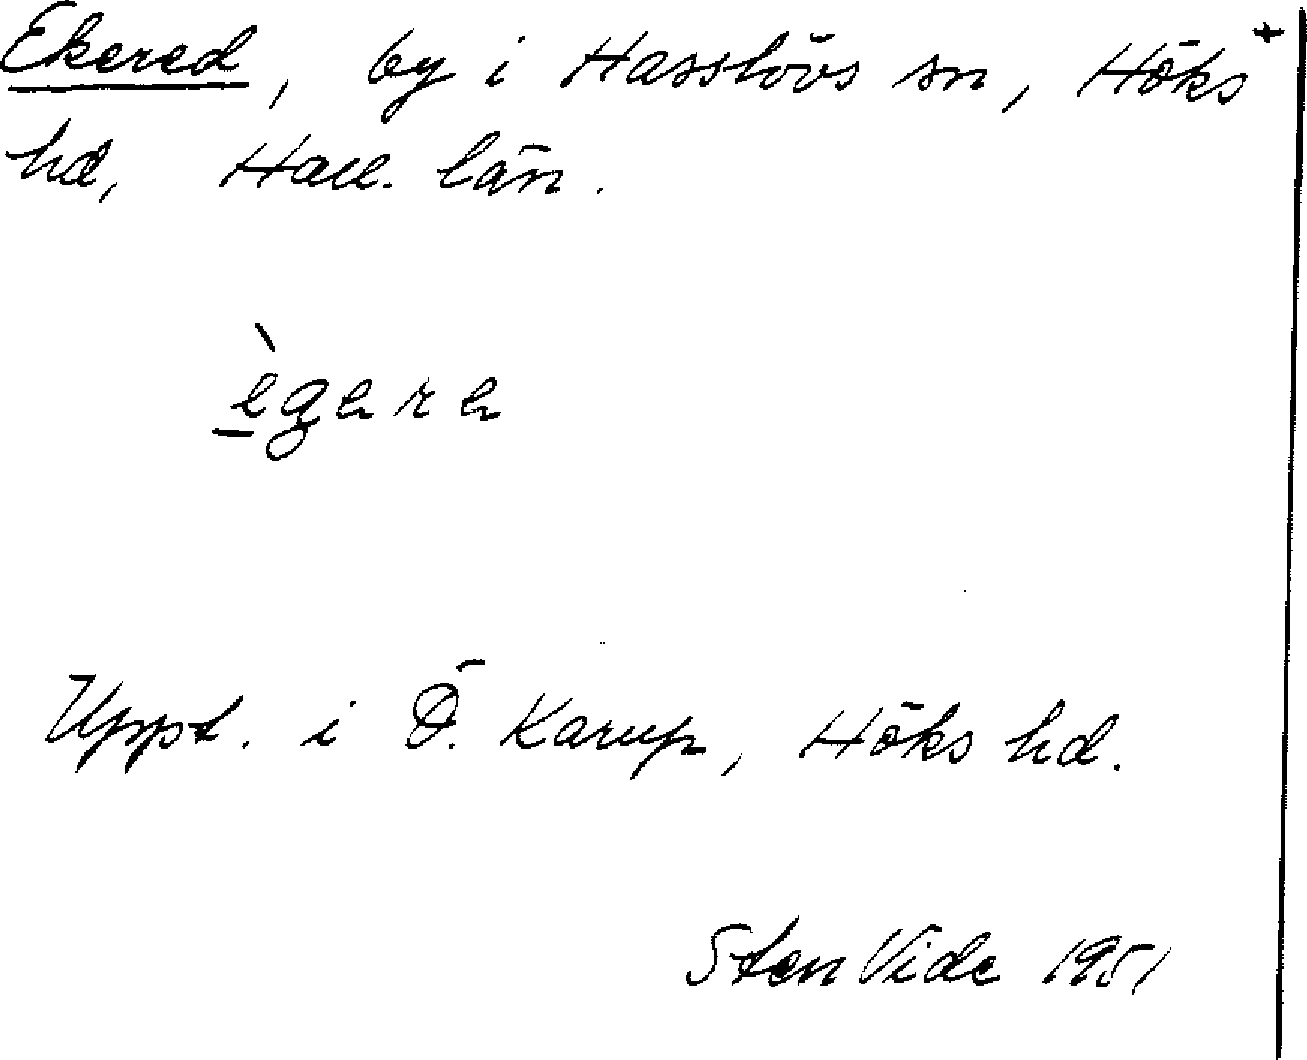 Ekered, by i Hasslövs sn, Höks +
hd, Hall. län.
ègere
Uppt. i Ö. Karup, Höks hd.
Sten Vide 1951